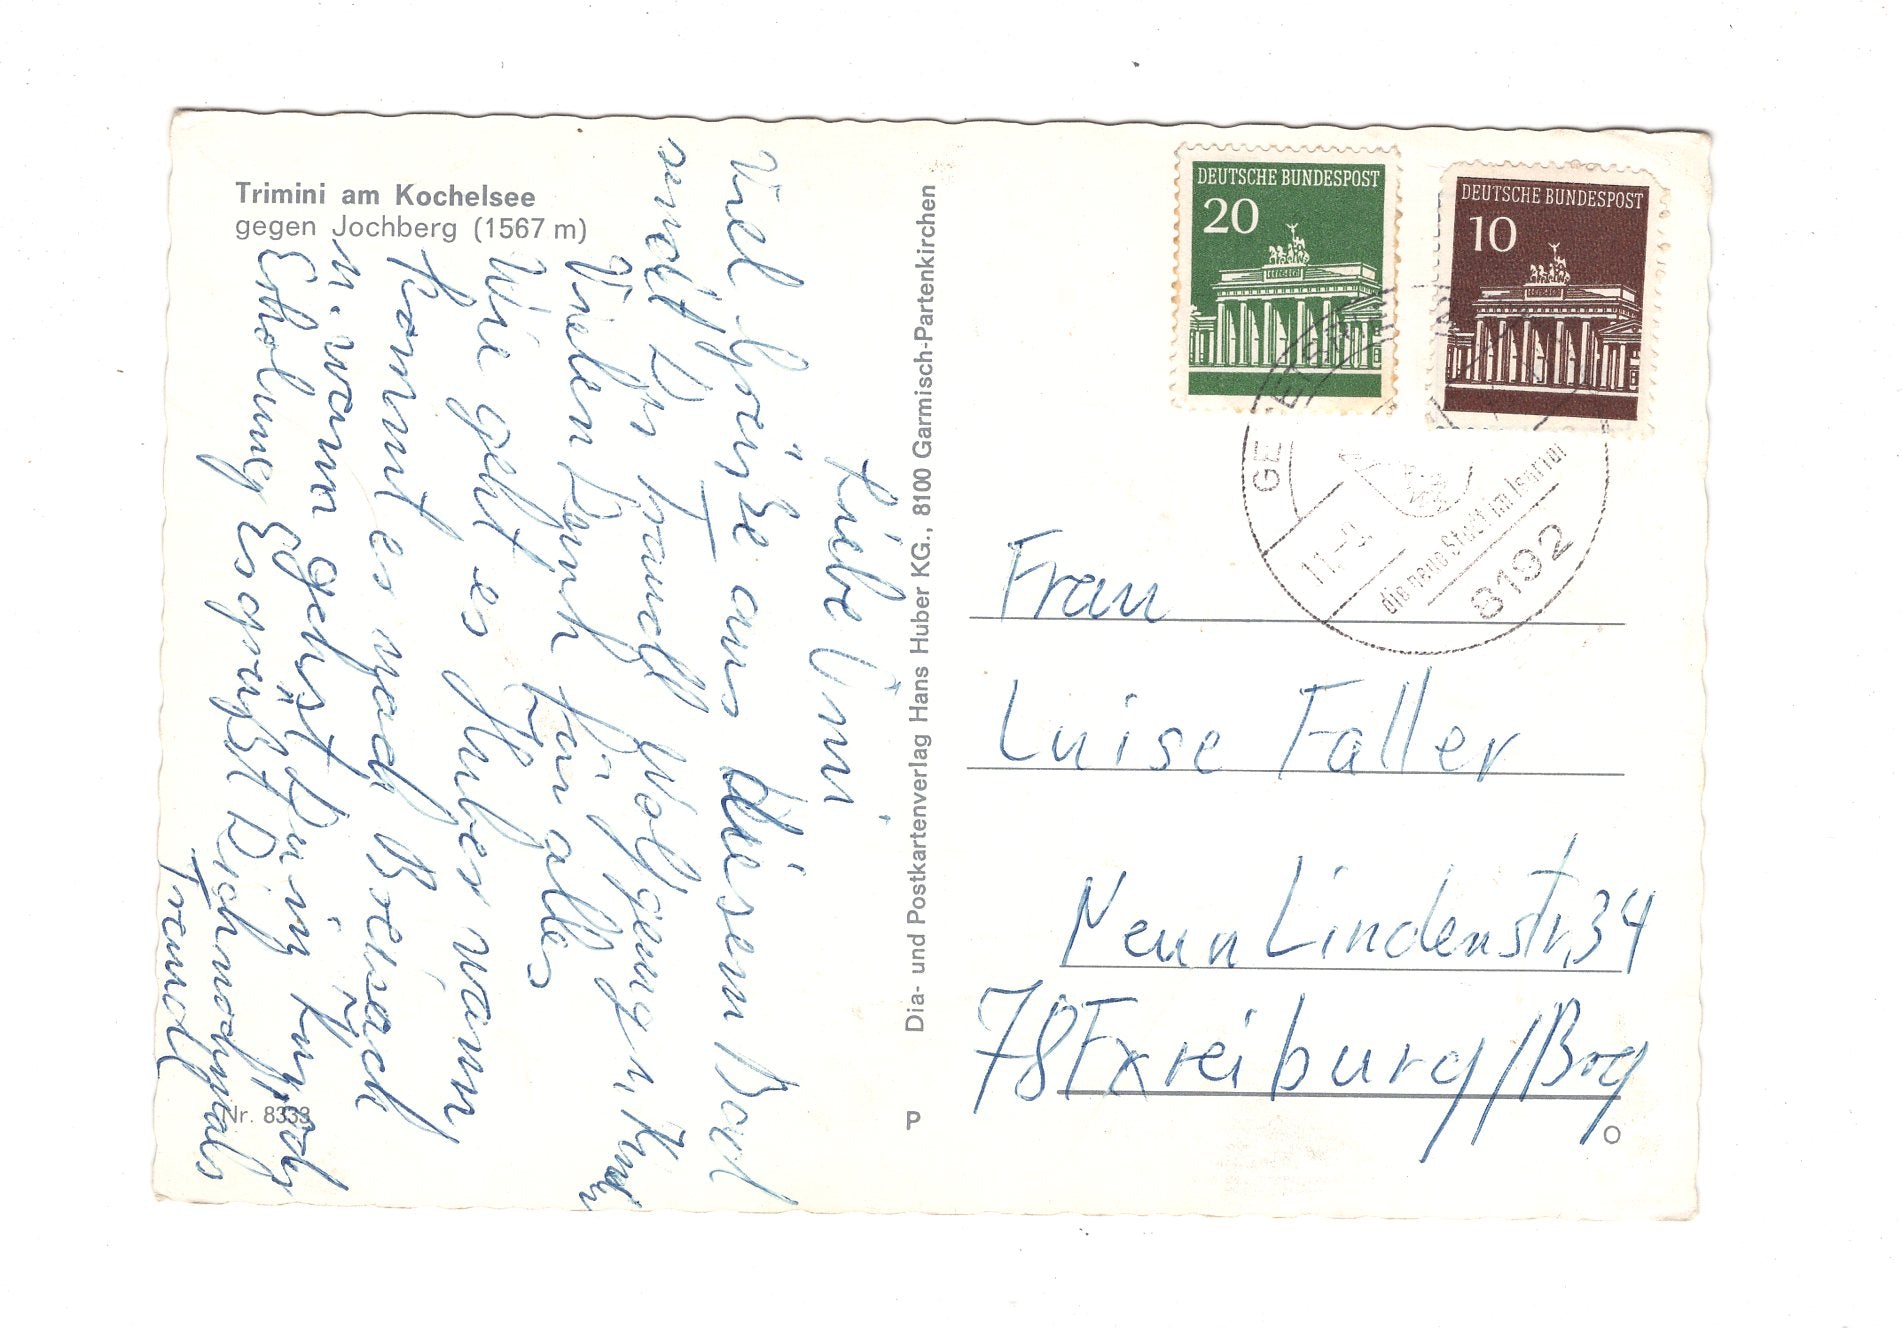 Trimini am Kochelsee
gegen Jochberg (1567 m)
Liebe Omi
Viel Grüße aus diesem Bad
sendt Dir Traudl Wolfgang u. Kinder
Vielen Dank für alles
Wie geht es Huber wann
kommt es nach Breisach
u. wann gehst Du in Kur, oder
Erholung Es grüßt Dich nochmals
Traudl
Nr. 8333
Dia- und Postkartenverlag Hans Huber KG., 8100 Garmisch-Partenkirchen
P
DEUTSCHE BUNDESPOST
20
DEUTSCHE BUNDESPOST
10
GERETSRIED
11.-9.
die neue Stadt im Isartal
8192
Frau
Luise Faller
Neun Lindenstr. 34
78 Freiburg/Brg
O